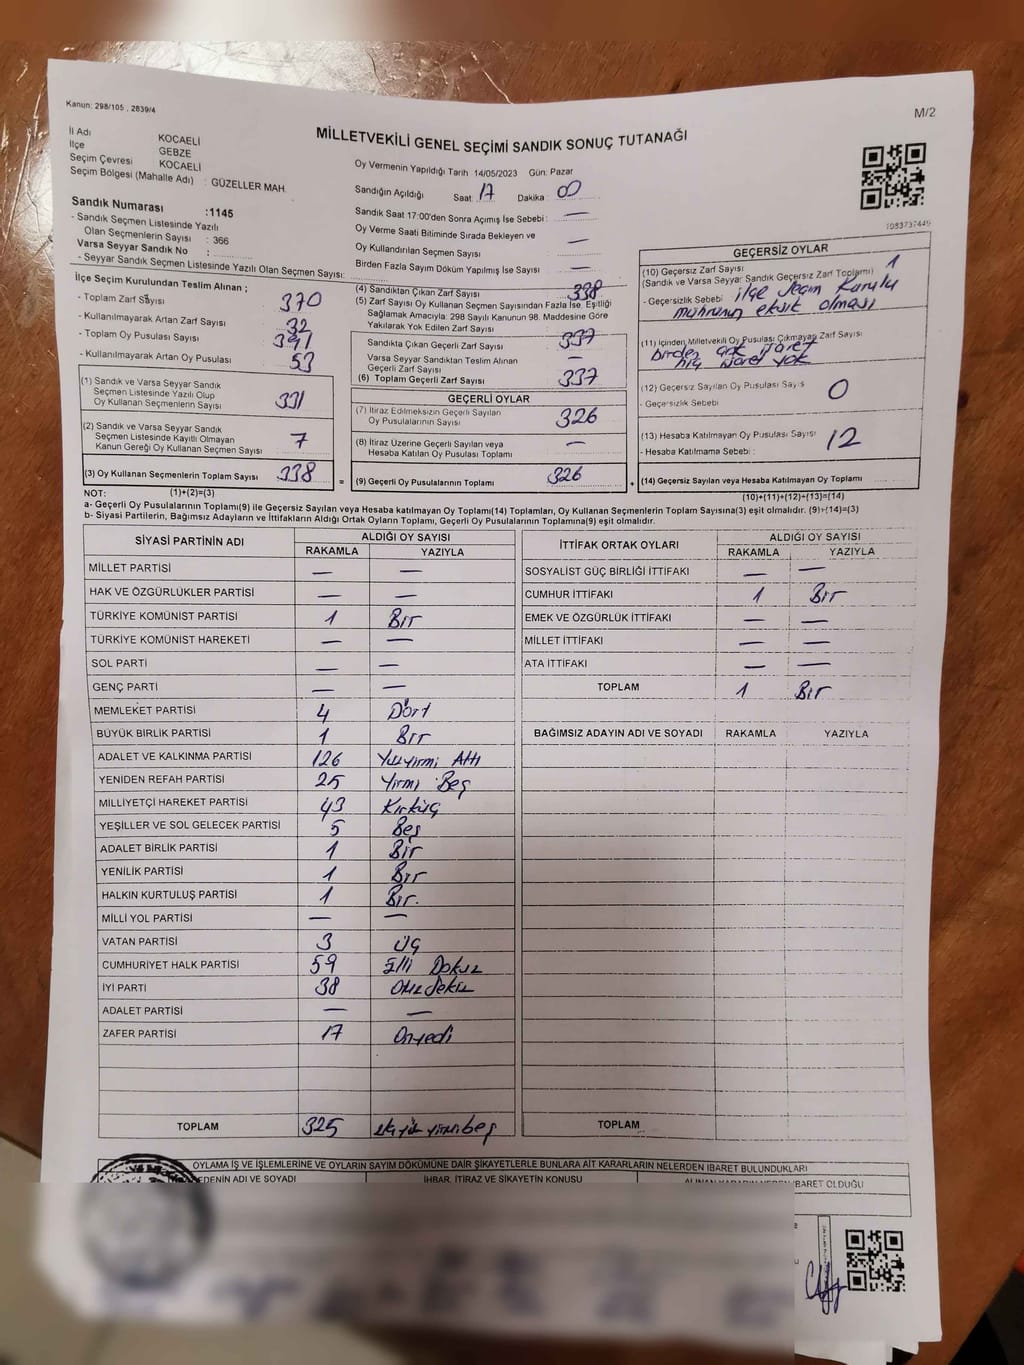 Kanun: 298/105 , 2839/4
M/2
MİLLETVEKİLİ GENEL SEÇİMİ SANDIK SONUÇ TUTANAĞI
İl Adı KOCAELİ
İlçe GEBZE
Seçim Çevresi KOCAELİ
Seçim Bölgesi (Mahalle Adı) : GÜZELLER MAH.
Sandık Numarası :1145
- Sandık Seçmen Listesinde Yazılı
Olan Seçmenlerin Sayısı : 366
Varsa Seyyar Sandık No :
- Seyyar Sandık Seçmen Listesinde Yazılı Olan Seçmen Sayısı:
Oy Vermenin Yapıldığı Tarih 14/05/2023 Gün: Pazar
Sandığın Açıldığı Saat: 17 Dakika : 00
Sandık Saat 17:00'den Sonra Açımış İse Sebebi : —
Oy Verme Saati Bitiminde Sırada Bekleyen ve
Oy Kullandırılan Seçmen Sayısı —
Birden Fazla Sayım Döküm Yapılmış İse Sayısı —
1083737449
İlçe Seçim Kurulundan Teslim Alınan ;
- Toplam Zarf Sayısı 370
- Kullanılmayarak Artan Zarf Sayısı 32
- Toplam Oy Pusulası Sayısı 391
- Kullanılmayarak Artan Oy Pusulası 53
(1) Sandık ve Varsa Seyyar Sandık
Seçmen Listesinde Yazılı Olup
Oy Kullanan Seçmenlerin Sayısı 331
(2) Sandık ve Varsa Seyyar Sandık
Seçmen Listesinde Kayıtlı Olmayan
Kanun Gereği Oy Kullanan Seçmen Sayısı 7
(3) Oy Kullanan Seçmenlerin Toplam Sayısı 338
(4) Sandıktan Çıkan Zarf Sayısı 338
(5) Zarf Sayısı Oy Kullanan Seçmen Sayısından Fazla İse, Eşitliği
Sağlamak Amacıyla: 298 Sayılı Kanunun 98. Maddesine Göre
Yakılarak Yok Edilen Zarf Sayısı
Sandıkta Çıkan Geçerli Zarf Sayısı 337
Varsa Seyyar Sandıktan Teslim Alınan
Geçerli Zarf Sayısı —
(6) Toplam Geçerli Zarf Sayısı 337
GEÇERLİ OYLAR
(7) İtiraz Edilmeksizin Geçerli Sayılan
Oy Pusulalarının Sayısı 326
(8) İtiraz Üzerine Geçerli Sayılan veya
Hesaba Katılan Oy Pusulası Toplamı —
= (9) Geçerli Oy Pusulalarının Toplamı 326
GEÇERSİZ OYLAR
(10) Geçersiz Zarf Sayısı 1
(Sandık ve Varsa Seyyar Sandık Geçersiz Zarf Toplamı)
- Geçersizlik Sebebi ilçe seçim kurulu
mührünün eksik olması
(11) İçinden Milletvekili Oy Pusulası Çıkmayan Zarf Sayısı
birden işaret
hiç işaret yok
(12) Geçersiz Sayılan Oy Pusulası Sayısı 0
- Geçersizlik Sebebi
(13) Hesaba Katılmayan Oy Pusulası Sayısı 12
- Hesaba Katılmama Sebebi :
+ (14) Geçersiz Sayılan veya Hesaba Katılmayan Oy Toplamı
NOT: (1)+(2)=(3) (10)+(11)+(12)+(13)=(14)
a- Geçerli Oy Pusulasının Toplamı(9) ile Geçersiz Sayılan veya Hesaba katılmayan Oy Toplamı(14) Toplamları, Oy Kullanan Seçmenlerin Toplam Sayısına(3) eşit olmalıdır. (9)+(14)=(3)
b- Siyasi Partilerin, Bağımsız Adayların ve İttifakların Aldığı Ortak Oyların Toplamı, Geçerli Oy Pusulalarının Toplamına(9) eşit olmalıdır.
SİYASİ PARTİNİN ADI ALDIĞI OY SAYISI
RAKAMLA YAZIYLA
MİLLET PARTİSİ — —
HAK VE ÖZGÜRLÜKLER PARTİSİ — —
TÜRKİYE KOMÜNİST PARTİSİ 1 Bir
TÜRKİYE KOMÜNİST HAREKETİ — —
SOL PARTİ — —
GENÇ PARTİ — —
MEMLEKET PARTİSİ 4 Dört
BÜYÜK BİRLİK PARTİSİ 1 Bir
ADALET VE KALKINMA PARTİSİ 126 Yüzyirmi Altı
YENİDEN REFAH PARTİSİ 25 Yirmi Beş
MİLLİYETÇİ HAREKET PARTİSİ 43 Kırküç
YEŞİLLER VE SOL GELECEK PARTİSİ 5 Beş
ADALET BİRLİK PARTİSİ 1 Bir
YENİLİK PARTİSİ 1 Bir
HALKIN KURTULUŞ PARTİSİ 1 Bir.
MİLLİ YOL PARTİSİ — —
VATAN PARTİSİ 3 üç
CUMHURİYET HALK PARTİSİ 59 Elli Dokuz
İYİ PARTİ 38 Otuz Sekiz
ADALET PARTİSİ — —
ZAFER PARTİSİ 17 Onyedi
TOPLAM 325
İTTİFAK ORTAK OYLARI ALDIĞI OY SAYISI
RAKAMLA YAZIYLA
SOSYALİST GÜÇ BİRLİĞİ İTTİFAKI — —
CUMHUR İTTİFAKI 1 Bir
EMEK VE ÖZGÜRLÜK İTTİFAKI — —
MİLLET İTTİFAKI — —
ATA İTTİFAKI — —
TOPLAM 1 Bir
BAĞIMSIZ ADAYIN ADI VE SOYADI RAKAMLA YAZIYLA
TOPLAM
OYLAMA İŞ VE İŞLEMLERİNE VE OYLARIN SAYIM DÖKÜMÜNE DAİR ŞİKAYETLERLE BUNLARA AİT KARARLARIN NELERDEN İBARET BULUNDUKLARI
EDENİN ADI VE SOYADI İHBAR, İTİRAZ VE ŞİKAYETİN KONUSU İBARET OLDUĞU